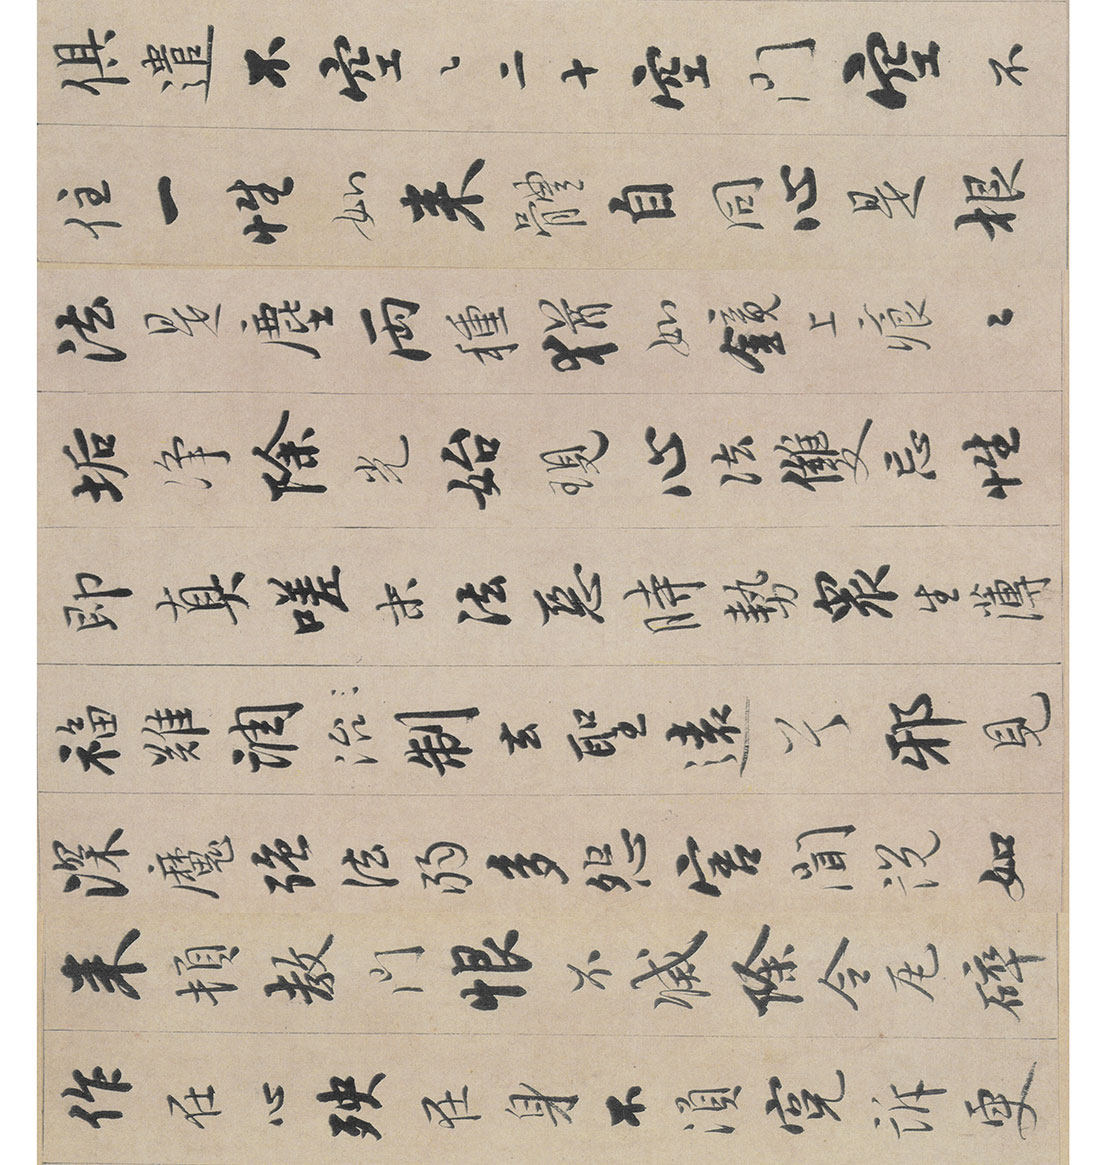 俱遣不空〻二十空門空不
住一性如來體自同心是根
法是塵兩種猶如鏡上痕〻
垢淨除光始現心法雙忘性
即真嗟末法惡時勢衆生薄
福難調治制去聖遠兮邪見
深魔強法弱多怨害聞說如
來頓教門恨不滅除令瓦碎
作在心殃在身不須冤訴更